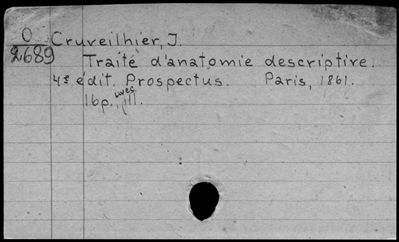 O Cruveilhier, J.
2689 Traité d'anatomie descriptive.
4e édit. Prospectus. Paris, 1861.
16p., ill.